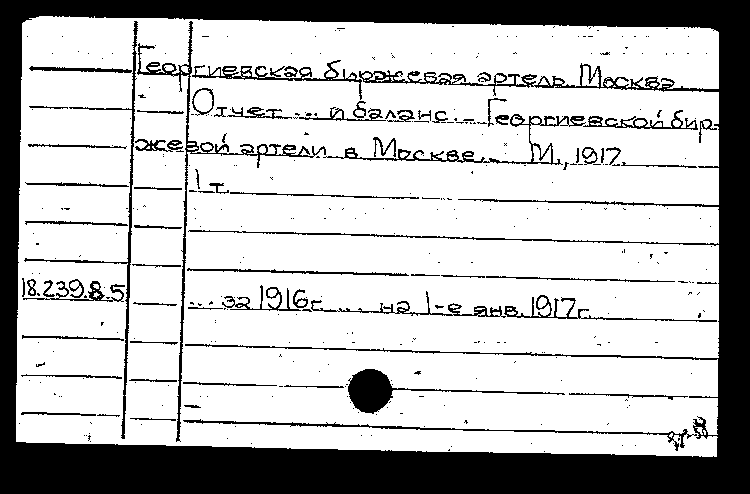 Георгиевская биржевая артель. Москва.
Отчет ... и баланс. - Георгиевской бир-
жевой артели в Москве. - М., 1917.
1 т.
18.239.8.5 ... за 1916г. ... на 1-е янв. 1917г.